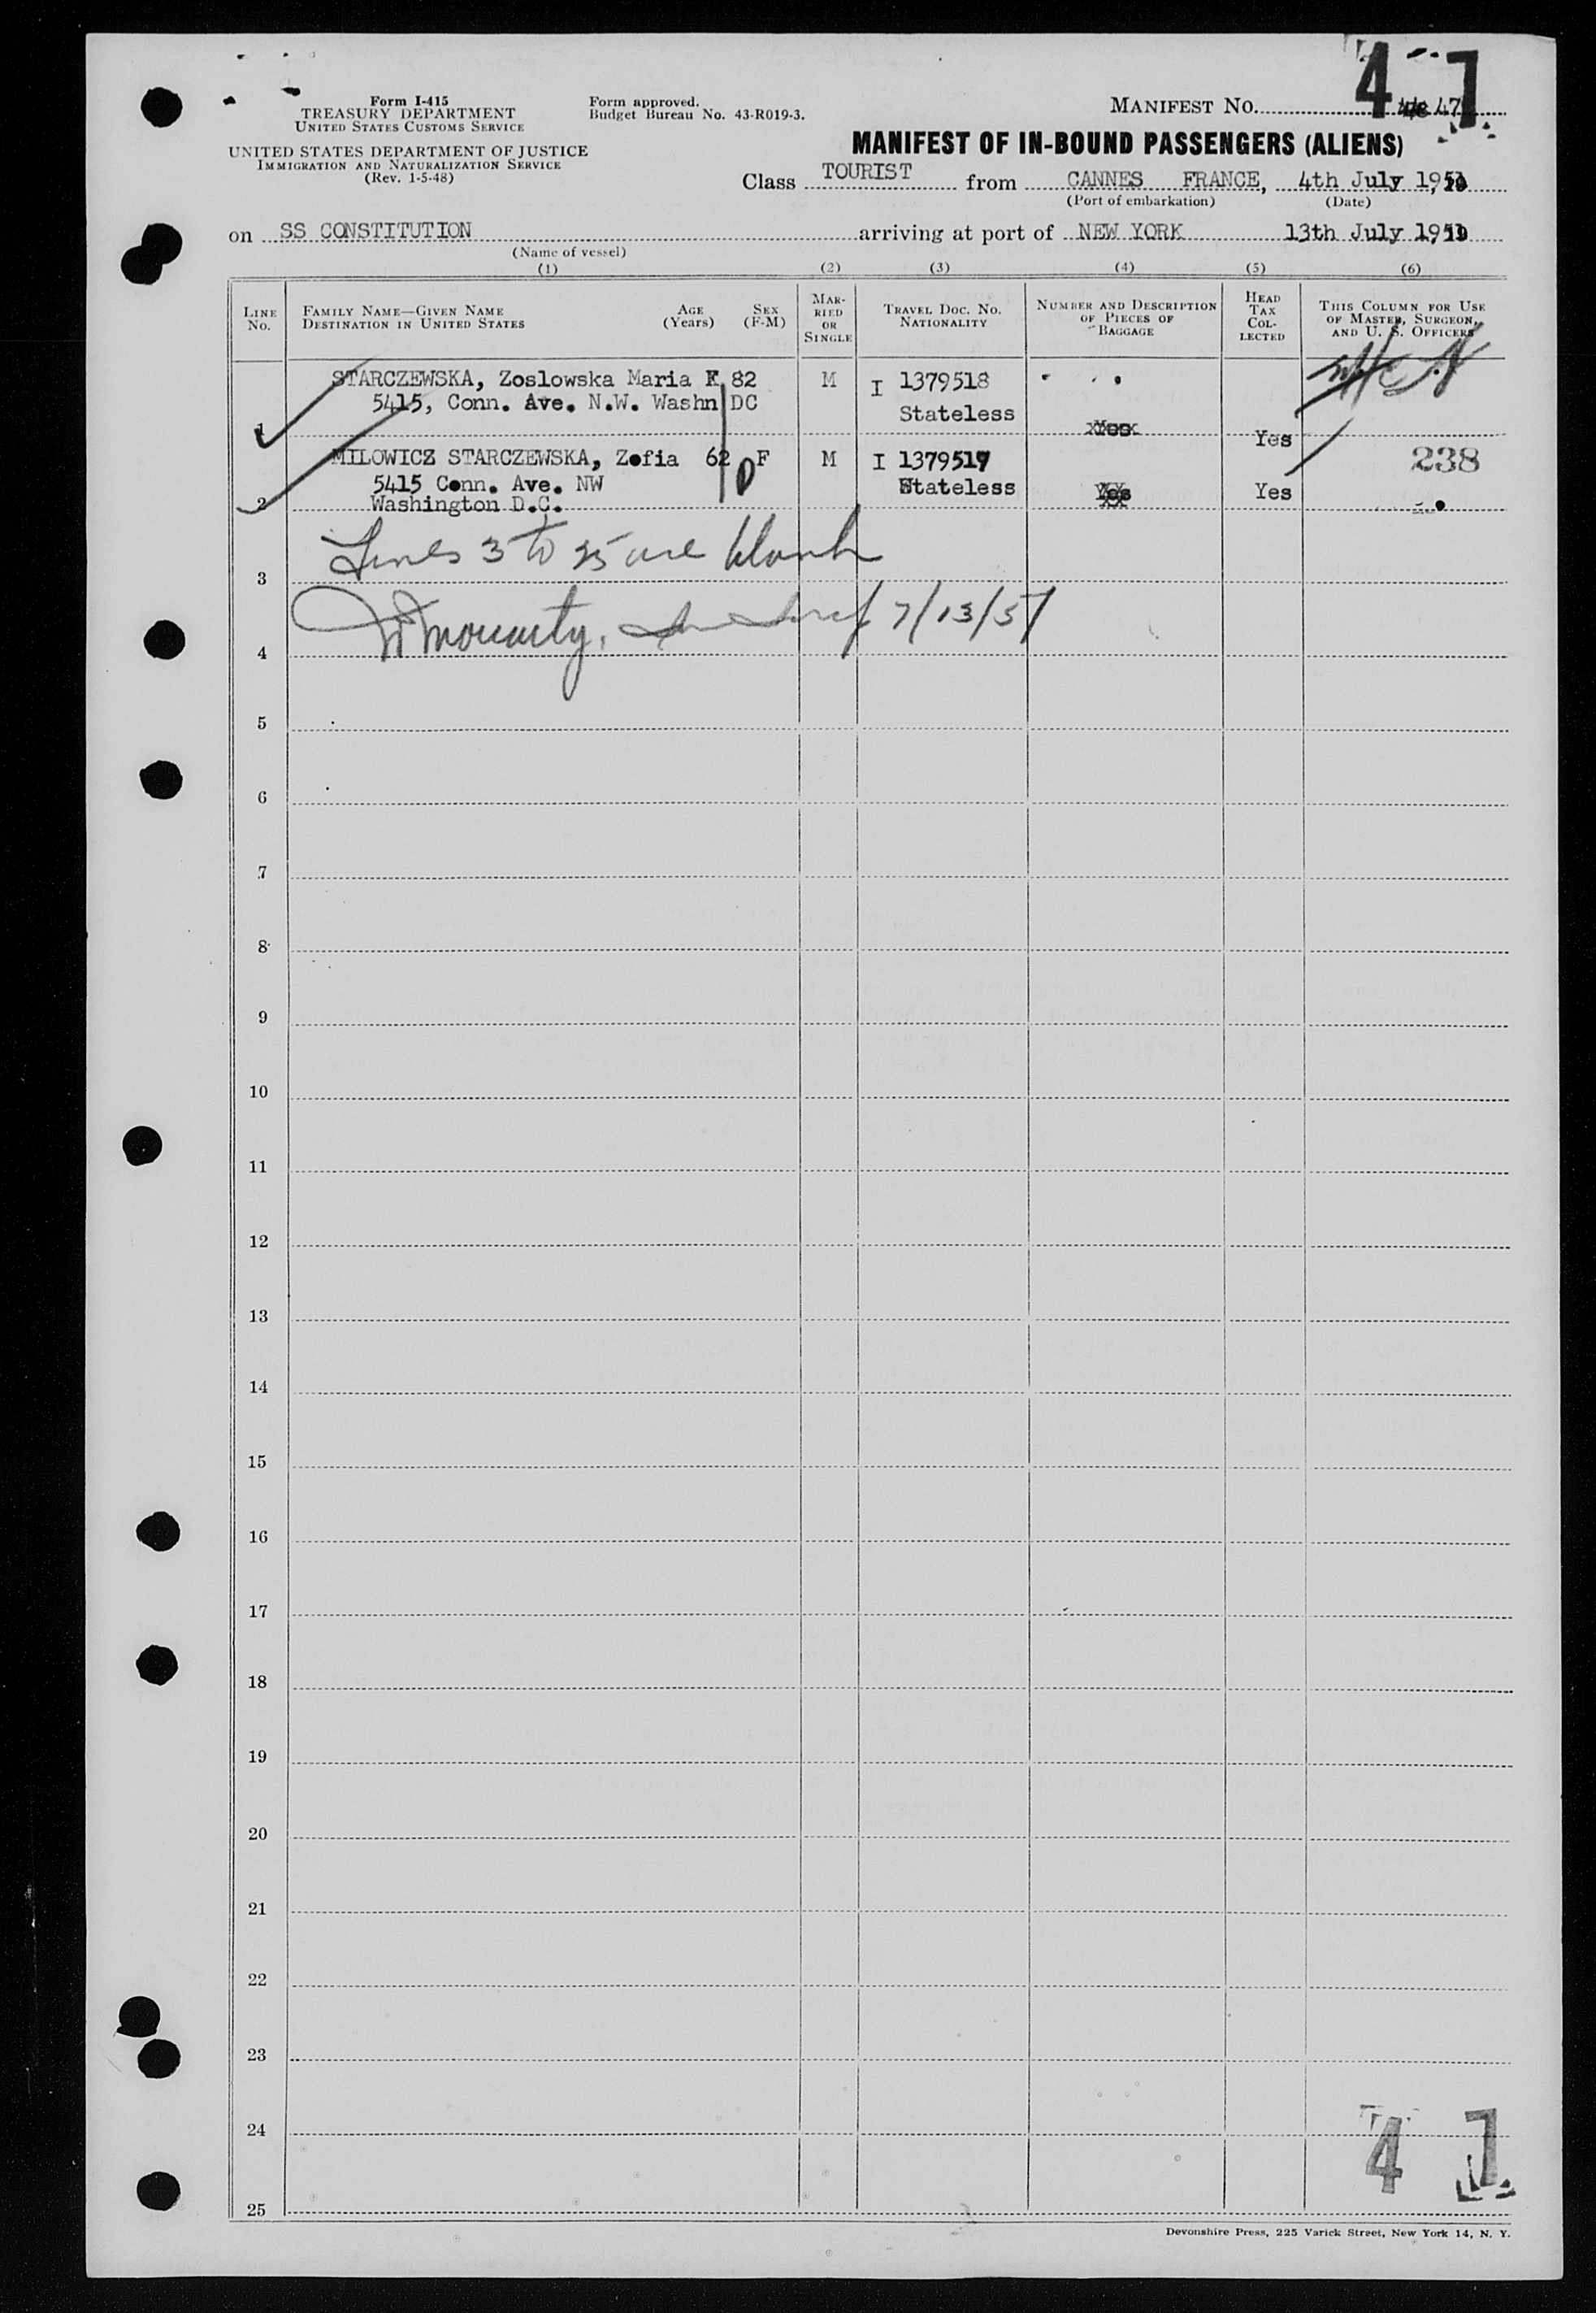 4 7
Form I-415
TREASURY DEPARTMENT
UNITED STATES CUSTOMS SERVICE
Form approved.
Budget Bureau No. 43-R019-3.
MANIFEST NO. 47
UNITED STATES DEPARTMENT OF JUSTICE
IMMIGRATION AND NATURALIZATION SERVICE
(Rev. 1-5-48)
MANIFEST OF IN-BOUND PASSENGERS (ALIENS)
Class TOURIST from CANNES FRANCE, 4th July 1951
(Port of embarkation) (Date)
on SS CONSTITUTION arriving at port of NEW YORK 13th July 1951
(Name of vessel)
(1) (2) (3) (4) (5) (6)
LINE No. FAMILY NAME—GIVEN NAME DESTINATION IN UNITED STATES AGE (Years) SEX (F-M) MARRIED OR SINGLE TRAVEL DOC. NO. NATIONALITY NUMBER AND DESCRIPTION OF PIECES OF BAGGAGE HEAD TAX COLLECTED THIS COLUMN FOR USE OF MASTER, SURGEON, AND U. S. OFFICERS
STARCZEWSKA, Zoslowska Maria F 82 M I 1379518
5415, Conn. Ave. N.W. Washn DC Stateless
1 Yes Yes
MILOWICZ STARCZEWSKA, Zofia 62 F M I 1379517 238
5415 Conn. Ave. NW Stateless Yes Yes
2 Washington D.C.
Lines 3 to 25 are blank
3
Moriarty, 7/13/51
4
5
6
7
8
9
10
11
12
13
14
15
16
17
18
19
20
21
22
23
24
4 7
25
Devonshire Press, 225 Varick Street, New York 14, N. Y.